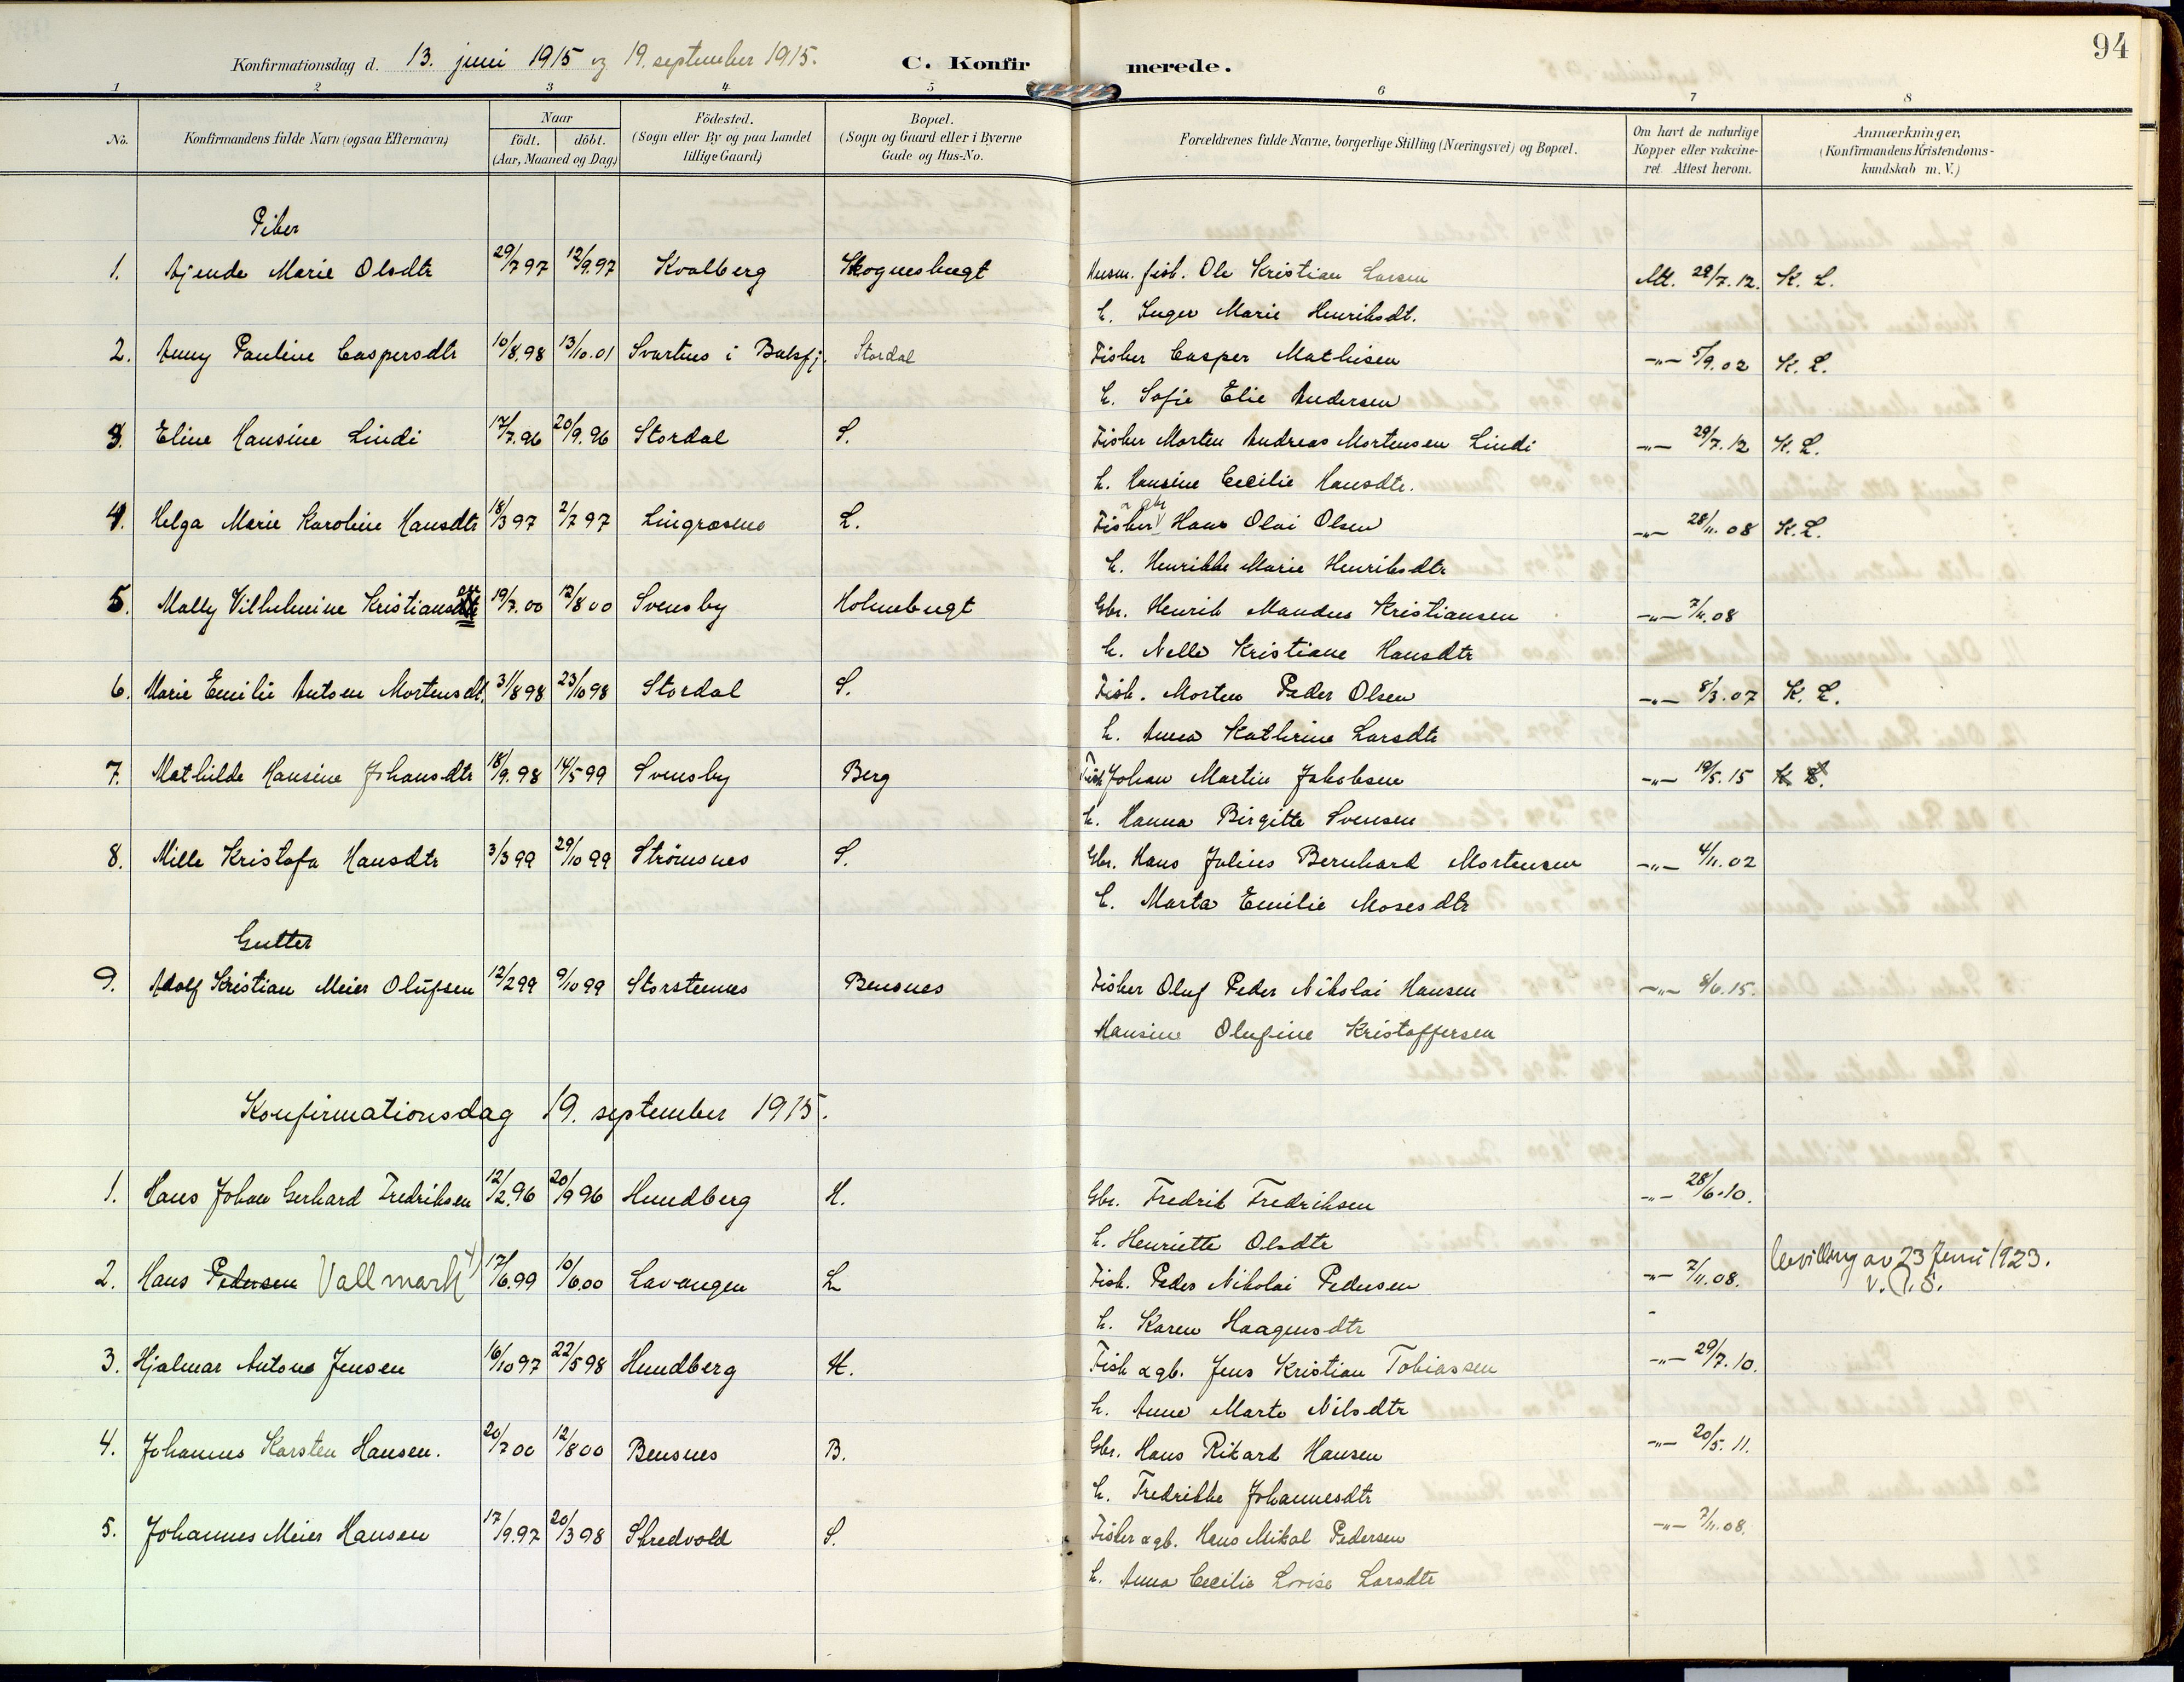 94
Konfirmationsdag d. 13. juni 1915 og 19. september 1915. C. Konfirmerede.
1 2 3 4 5 6 7 8
No. Konfirmandens fulde Navn (ogsaa Efternavn) Naar født. døbt. (Aar, Maaned og Dag) Födested. (Sogn eller By og paa Landet tillige Gaard) Bopæl. (Sogn og Gaard eller i Byerne Gade og Hus-No. Forældrenes fulde Navne, borgerlige Stilling (Næringsvei) og Bopæl. Om havt de naturlige Kopper eller vakcineret. Attest herom. Anmærkninger, (Konfirmandens Kristendomskundskab m. V.)
Piker
1. Ajende Marie Olsdtr 29/7 97 12/9.97 Kvalberg Skognesbugt Husm. fisk. Ole Kristian Larsen Att. 29/7.12. K. L.
h. Inger Marie Henriksdt.
2. Anny Pauline Caspersdtr 10/8.98 13/10.01 Svartnes i Balsfj. Stordal Fisker Casper Mathisen -"- 5/9.02 K. L.
h. Sofie Elie Andersen
3. Eline Hansine Lindi 17/7.96 20/9.96 Stordal S. Fisker Morten Andreas Mortensen Lindi -"- 29/7.12 K. L.
h. Hansine Cecilie Hansdtr.
4. Helga Marie Karoline Hansdtr 18/3 97 2/7 97 Lingrasene L. Fisker Hans Olai Olsen -"- 28/11.08 K. L.
h. Henrikke Marie Henriksdtr
5. Mally Vilhelmine Kristians 19/7.00 12/8 00 Svensby Holmebugt Gbr. Henrik Mandus Kristiansen -"- 7/11.08
h. Nelle Kristiane Hansdtr
6. Marie Emilie Antsen Mortensdt. 31/8 98 23/10 98 Stordal S. Fisk. Morten Peder Olsen -"- 8/3.07 K. L.
h. Anna Kathrine Larsdtr
7. Mathilde Hansine Johansdtr 18/9.98 14/5 99 Svensby Berg Fisk Johan Martin Jakobsen -"- 19/5.15 K. L.
h. Hanna Birgitte Svensen
8. Mille Kristofa Hansdtr 3/3 99 29/10 99 Strömsnes S. Gbr. Hans Julius Bernhard Mortensen -"- 4/11.02
h. Marta Emilie Mosesdtr
Gutter
9. Adolf Kristian Meier Olufsen 12/2 99 9/10 99 Storstennes Bensnes Fisker Oluf Peder Nikolai Hansen -"- 8/6.15.
Hansine Olufine Kristoffersen
Konfirmationsdag 19. september 1915.
1. Hans Johan Gerhard Fredriksen 12/2.96 20/9 96 Hundberg H. Gbr. Fredrik Fredriksen -"- 28/6.10.
h. Henriette Olsdtr
2. Hans Pedersen Vallmark 17/6.99 10/6.00 Lavangen L Fisk. Peder Nikolai Pedersen -"- 7/11.08. bevilling av 23 Juni 1923.
h. Karen Haagensdtr
3. Hjalmar Antons Jensen 16/10 97 22/5 98 Hundberg H. Fisk & gb. Jens Kristian Tobiassen -"- 29/7.10.
h. Anne Marte Nilsdtr
4. Johannes Karsten Hansen. 20/7 00 12/8 00 Bensnes B. Gbr. Hans Rikard Hansen -"- 20/5.11.
h. Fredrikke Johannesdtr
5. Johannes Meier Hansen 17/9.97 20/3 98 Skredvold S. Fisker & gb. Hans Mikal Pedersen -"- 7/11.08.
h. Anna Cecilie Lovise Larsdtr